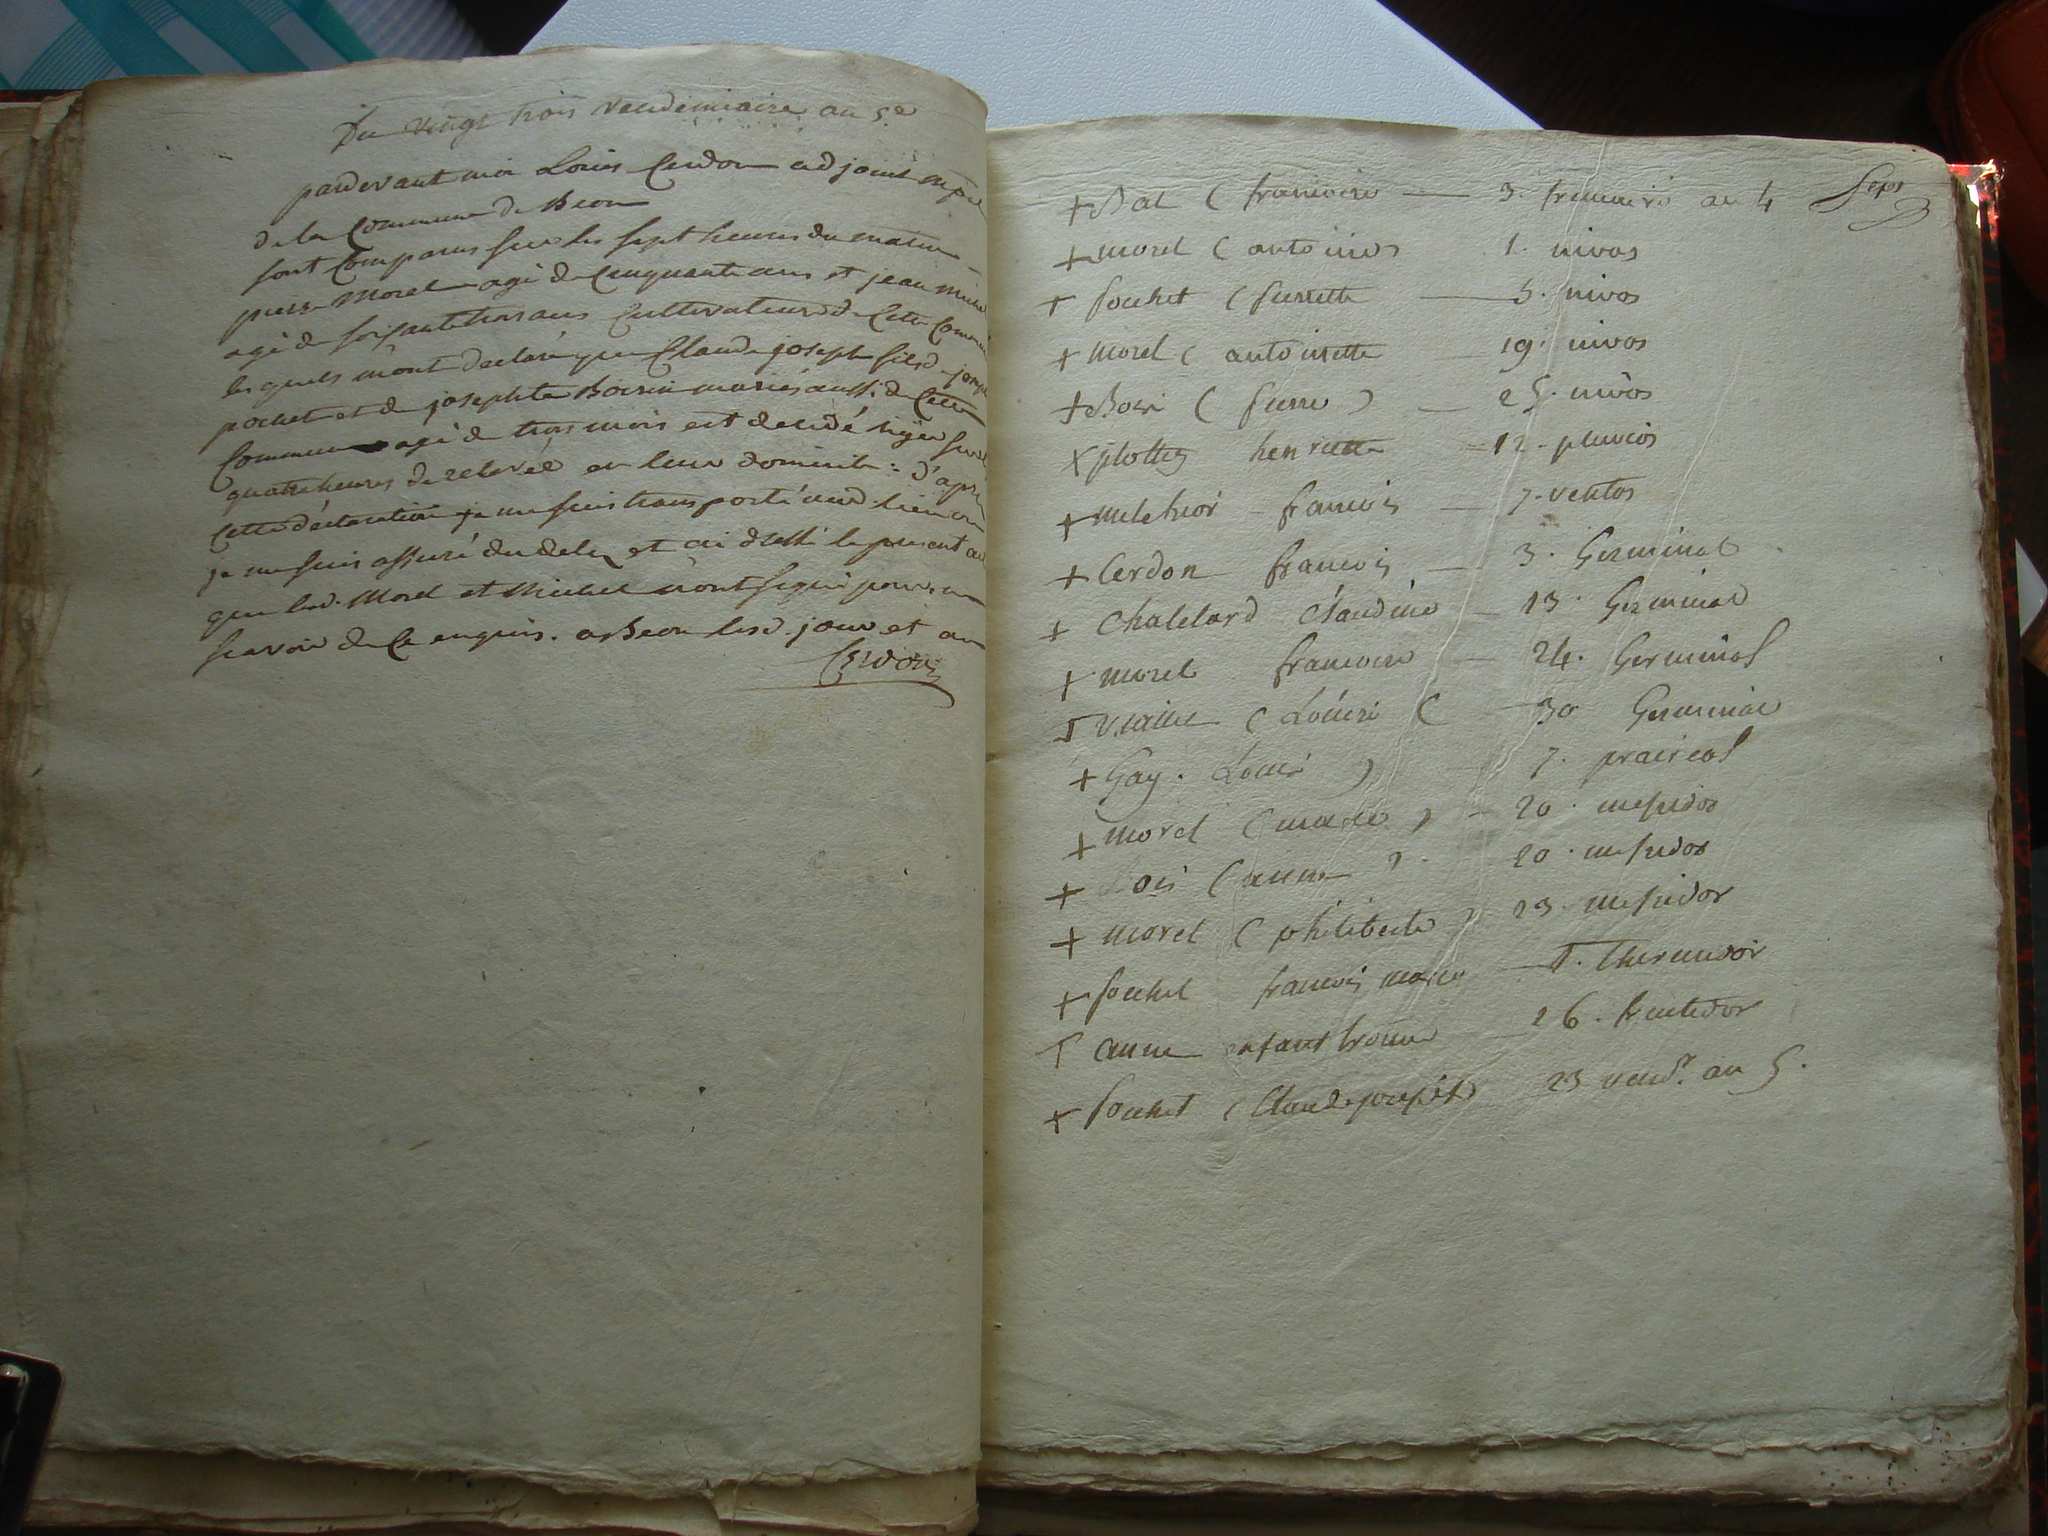 Du vingt trois vendemiaire an 5e
pardevant moi Louis Cerdon adjoint mpal
de la Commune de Beon
sont Comparus sur les sept heures du matin
pierre Morel agé de Cinquante ans et jean michel
agé de soixante trois ans Cultivateurs de Cette Commune
lesquels m'ont declaré que Claude joseph fils de joseph
pochet et de josephte Boisin mariés aussi de Cette
Commune agé de trois mois est decedé hyer sur les
quatre heures de relevée en leur domicile : d'après
Cette déclaration je me suis transporté audt lieu ou
je me suis assuré du deces et ai dressé le present acte
que lesd. Morel et Michel n'ont signé pour ne
scavoir de Ce enquis. a Beon lesd. jour et an
Cerdon
+ Bal ( francoise — 3. frimaire an 4
+ morel ( antoine 1. nivos
+ pochet ( pierrette — 5. nivos
+ morel ( antoinette 19. nivos
+ Bois ( pierre ) — 25. nivos
+ plottey henriette — 12. pluvios
+ melchior francois — 7. ventos
+ Cerdon francois — 3. Germinal
+ Chatelard Claudine — 13. Germinal
+ morel francoise — 24. Germinal
( Louise ( — 30 Germinal
+ Gay. Louise ) 7. prairial
+ morel ( marie ) - 20. messidor
+ ( anne ) 20. messidor
+ morel ( philiberte ) 23. messidor
+ pochet francois marie — 1. Thermidor
anne enfant trouvé 26. fructidor
+ pochet ( Claude joseph ) 23 vendr. an 5.